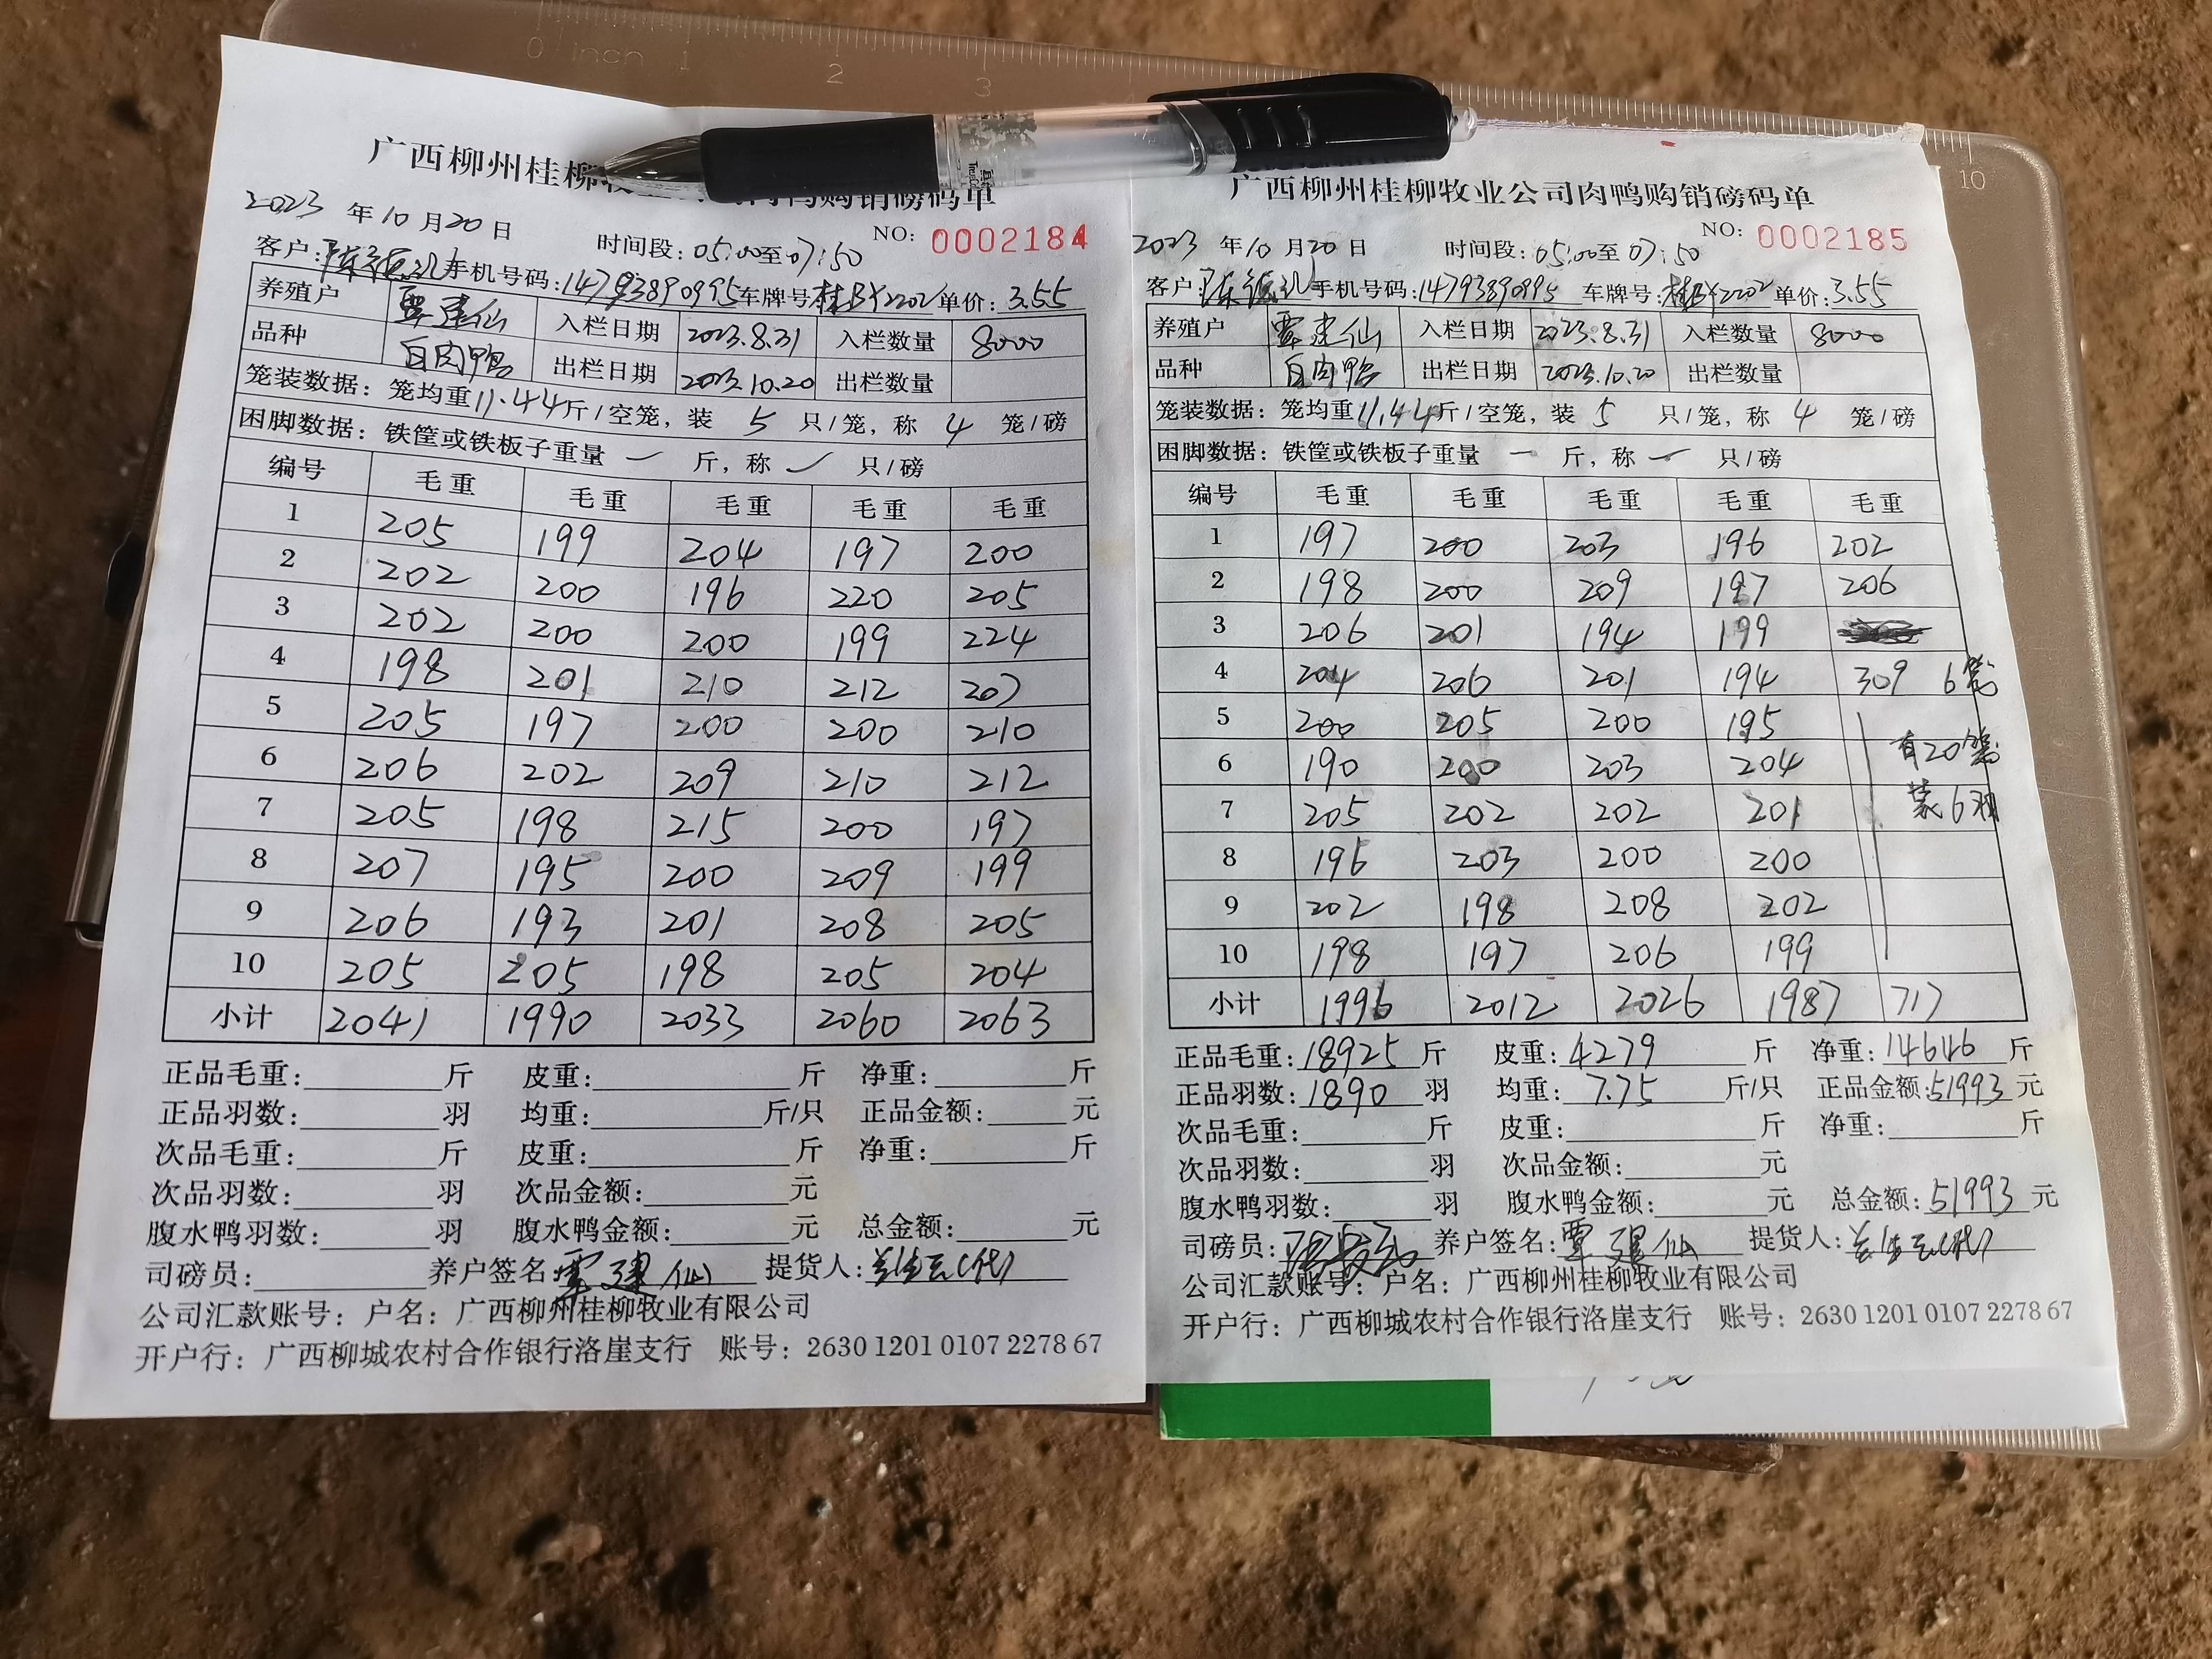 广西柳州桂柳牧
肉鸭购销磅码单
2023 年 10 月 20 日 时间段：05:00至07:50 NO: 0002184
客户： 手机号码：14793890995 车牌号：桂BY2202 单价：3.55
养殖户 覃建仙 入栏日期 2023.8.31 入栏数量 8000
品种 白肉鸭 出栏日期 2023.10.20 出栏数量
笼装数据：笼均重11.44斤/空笼，装 5 只/笼，称 4 笼/磅
困脚数据：铁筐或铁板子重量 一 斤，称 只/磅
编号 毛重 毛重 毛重 毛重 毛重
1 205 199 204 197 200
2 202 200 196 220 205
3 202 200 200 199 224
4 198 201 210 212 207
5 205 197 200 200 210
6 206 202 209 210 212
7 205 198 215 200 197
8 207 195 200 209 199
9 206 193 201 208 205
10 205 205 198 205 204
小计 2041 1990 2033 2060 2063
正品毛重： 斤 皮重： 斤 净重： 斤
正品羽数： 羽 均重： 斤/只 正品金额： 元
次品毛重： 斤 皮重： 斤 净重： 斤
次品羽数： 羽 次品金额： 元
腹水鸭羽数： 羽 腹水鸭金额： 元 总金额： 元
司磅员： 养户签名：覃建仙 提货人：
公司汇款账号：户名：广西柳州桂柳牧业有限公司
开户行：广西柳城农村合作银行洛崖支行 账号：2630 1201 0107 2278 67
广西柳州桂柳牧业公司肉鸭购销磅码单
2023 年 10 月 20 日 时间段：05:00至07:50 NO: 0002185
客户： 手机号码：14793890995 车牌号：桂BY2202 单价：3.55
养殖户 覃建仙 入栏日期 2023.8.31 入栏数量 8000
品种 白肉鸭 出栏日期 2023.10.20 出栏数量
笼装数据：笼均重11.44斤/空笼，装 5 只/笼，称 4 笼/磅
困脚数据：铁筐或铁板子重量 一 斤，称 一 只/磅
编号 毛重 毛重 毛重 毛重 毛重
1 197 200 203 196 202
2 198 200 209 197 206
3 206 201 194 199
4 204 206 201 194 309 6笼
5 200 205 200 195
6 190 200 203 204 有20笼
7 205 202 202 201 装6羽
8 196 203 200 200
9 202 198 208 202
10 198 197 206 199
小计 1996 2012 2026 1987 717
正品毛重：18925 斤 皮重：4279 斤 净重：14646 斤
正品羽数：1890 羽 均重：7.75 斤/只 正品金额：51993 元
次品毛重： 斤 皮重： 斤 净重： 斤
次品羽数： 羽 次品金额： 元
腹水鸭羽数： 羽 腹水鸭金额： 元 总金额：51993 元
司磅员： 养户签名：覃建仙 提货人：
公司汇款账号：户名：广西柳州桂柳牧业有限公司
开户行：广西柳城农村合作银行洛崖支行 账号：2630 1201 0107 2278 67
0 inch 1 2 3 10